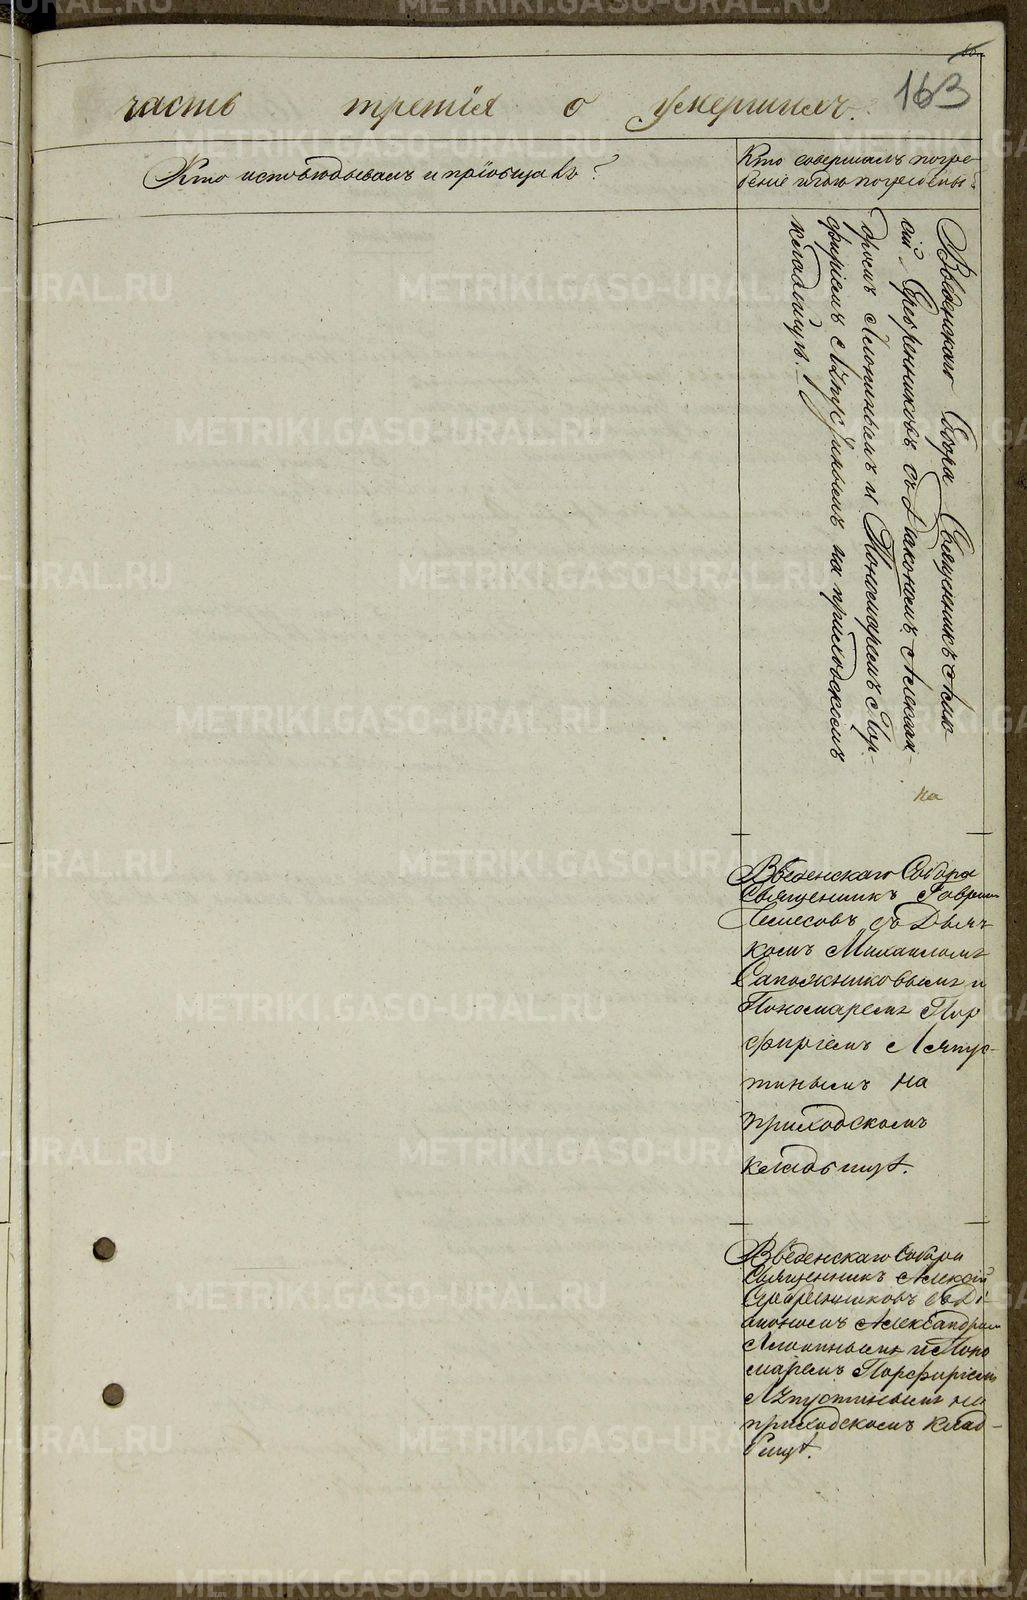 163
часть третія о умершихъ.
Кто исповѣдывалъ и пріобщалъ?
Кто совершалъ погре-
беніе и гдѣ погребены?
Введенскаго Собора Священникъ Алек-
сій Серебренниковъ съ Діакономъ Алексан-
дромъ и Пономаремъ Пор-
фиріемъ на приходскомъ
кладбищѣ.
на
Введенскаго Собора
Священникъ Гавріилъ
съ Дьяч-
комъ Михаиломъ
Сапожниковымъ и
Пономаремъ Пор
фиріемъ
на
приходскомъ
кладбищѣ.
Введенскаго Собора
Священникъ Алексій
Серебренниковъ съ Ді-
акономъ Александромъ
и Поно
маремъ Порфиріемъ
на
приходскомъ клад-
бищѣ.
METRIKI.GASO-URAL.RU